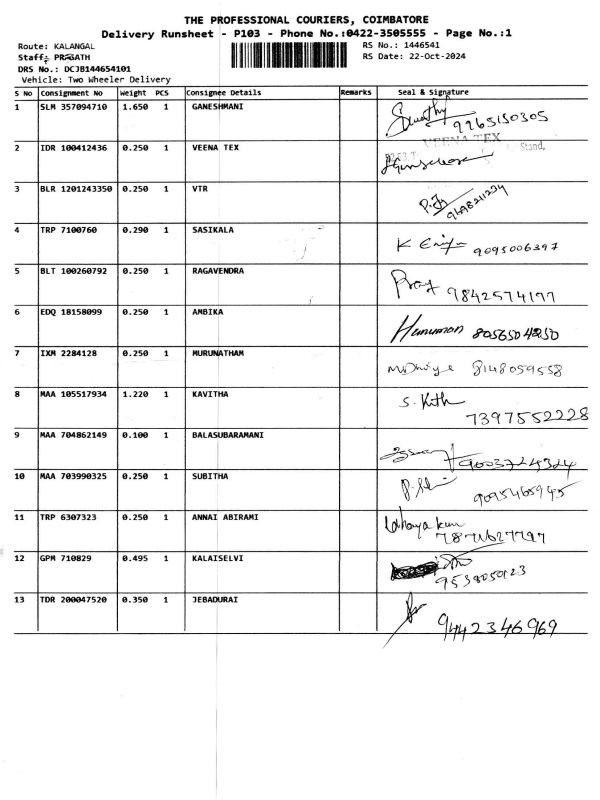 THE PROFESSIONAL COURIERS, COIMBATORE
Delivery Runsheet - P103 - Phone No.:0422-3505555 - Page No.:1
Route: KALANGAL RS No.: 1446541
Staff: PRGATH RS Date: 22-Oct-2024
DRS No.: DCJB144654101
Vehicle: Two Wheeler Delivery
S No Consignment No Weight PCS Consignee Details Remarks Seal & Signature
1 SLM 357094710 1.650 1 GANESHMANI
2 IDR 100412436 0.250 1 VEENA TEX VEENA TEX Stand,
3 BLR 1201243350 0.250 1 VTR
4 TRP 7100760 0.290 1 SASIKALA 9095006397
5 BLT 100260792 0.250 1 RAGAVENDRA
6 EDQ 18158099 0.250 1 AMBIKA Hanuman
7 IXM 2284128 0.250 1 MURUNATHAM 8148059558
8 MAA 105517934 1.220 1 KAVITHA 7397552228
9 MAA 704862149 0.100 1 BALASUBARAMANI 9003724324
10 MAA 703990325 0.250 1 SUBITHA 9095465945
11 TRP 6307323 0.250 1 ANNAI ABIRAMI
12 GPM 710829 0.495 1 KALAISELVI
13 TDR 200047520 0.350 1 JEBADURAI 9442346969